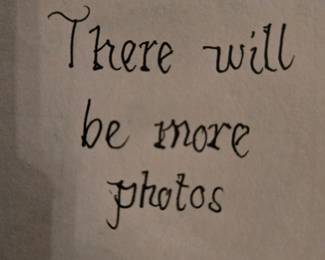 There will
be more
photos